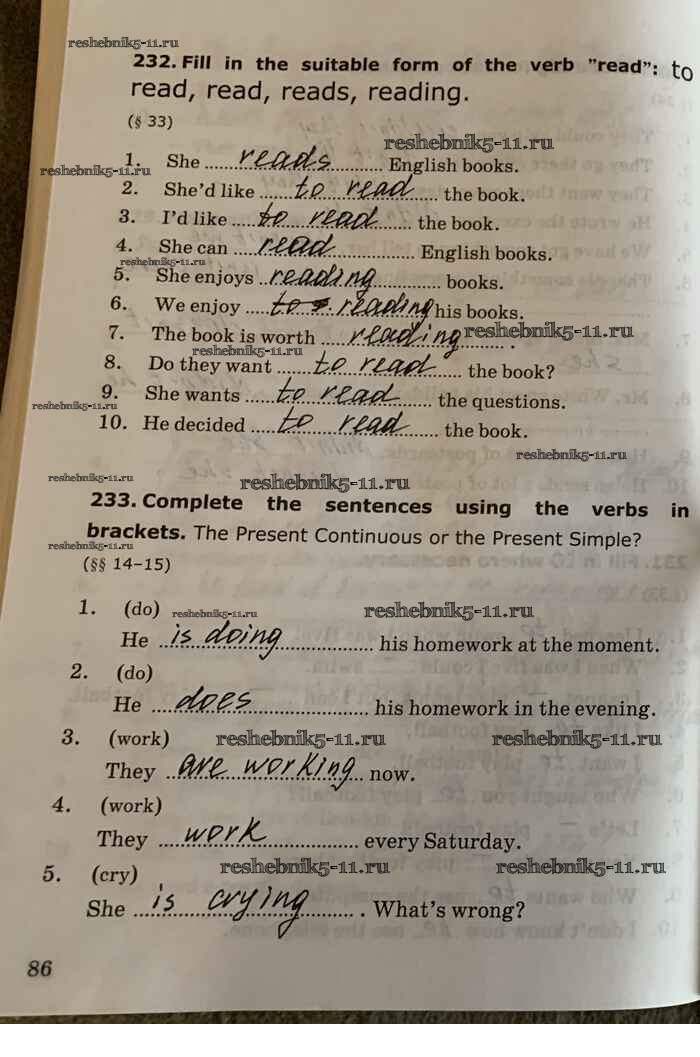 reshebnik5-11.ru
232. Fill in the suitable form of the verb "read": to
read, read, reads, reading.
(§ 33)
reshebnik5-11.ru
1. She reads English books.
reshebnik5-11.ru
2. She'd like to read the book.
3. I'd like to read the book.
4. She can read English books.
reshebnik5-11.ru
5. She enjoys reading books.
6. We enjoy reading his books.
7. The book is worth reading.
reshebnik5-11.ru
reshebnik5-11.ru
8. Do they want to read the book?
9. She wants to read the questions.
reshebnik5-11.ru
10. He decided to read the book.
reshebnik5-11.ru
reshebnik5-11.ru
reshebnik5-11.ru
233. Complete the sentences using the verbs in
brackets. The Present Continuous or the Present Simple?
reshebnik5-11.ru
(§§ 14–15)
1. (do)
reshebnik5-11.ru
reshebnik5-11.ru
He is doing his homework at the moment.
2. (do)
He does his homework in the evening.
3. (work)
reshebnik5-11.ru
reshebnik5-11.ru
They are working now.
4. (work)
They work every Saturday.
5. (cry)
reshebnik5-11.ru
reshebnik5-11.ru
She is crying. What's wrong?
86